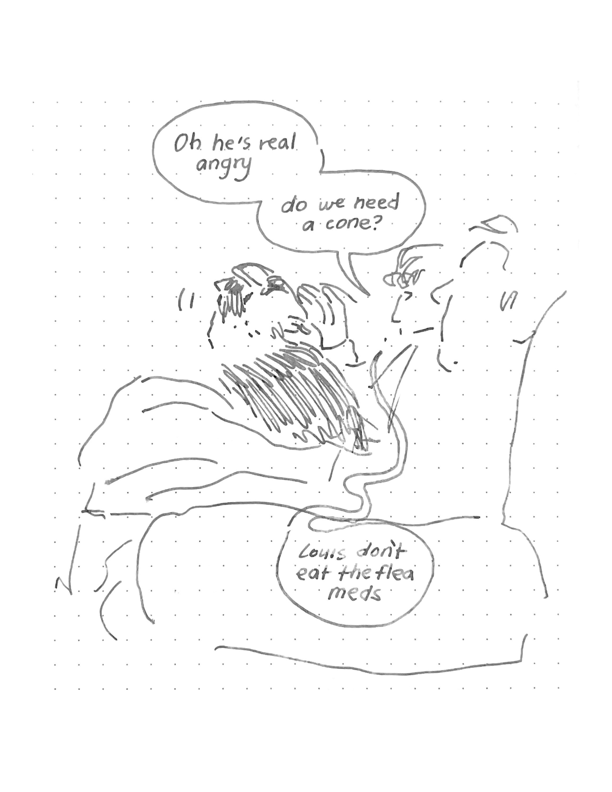 Oh he's real
angry
do we need
a cone?
Louis don't
eat the flea
meds